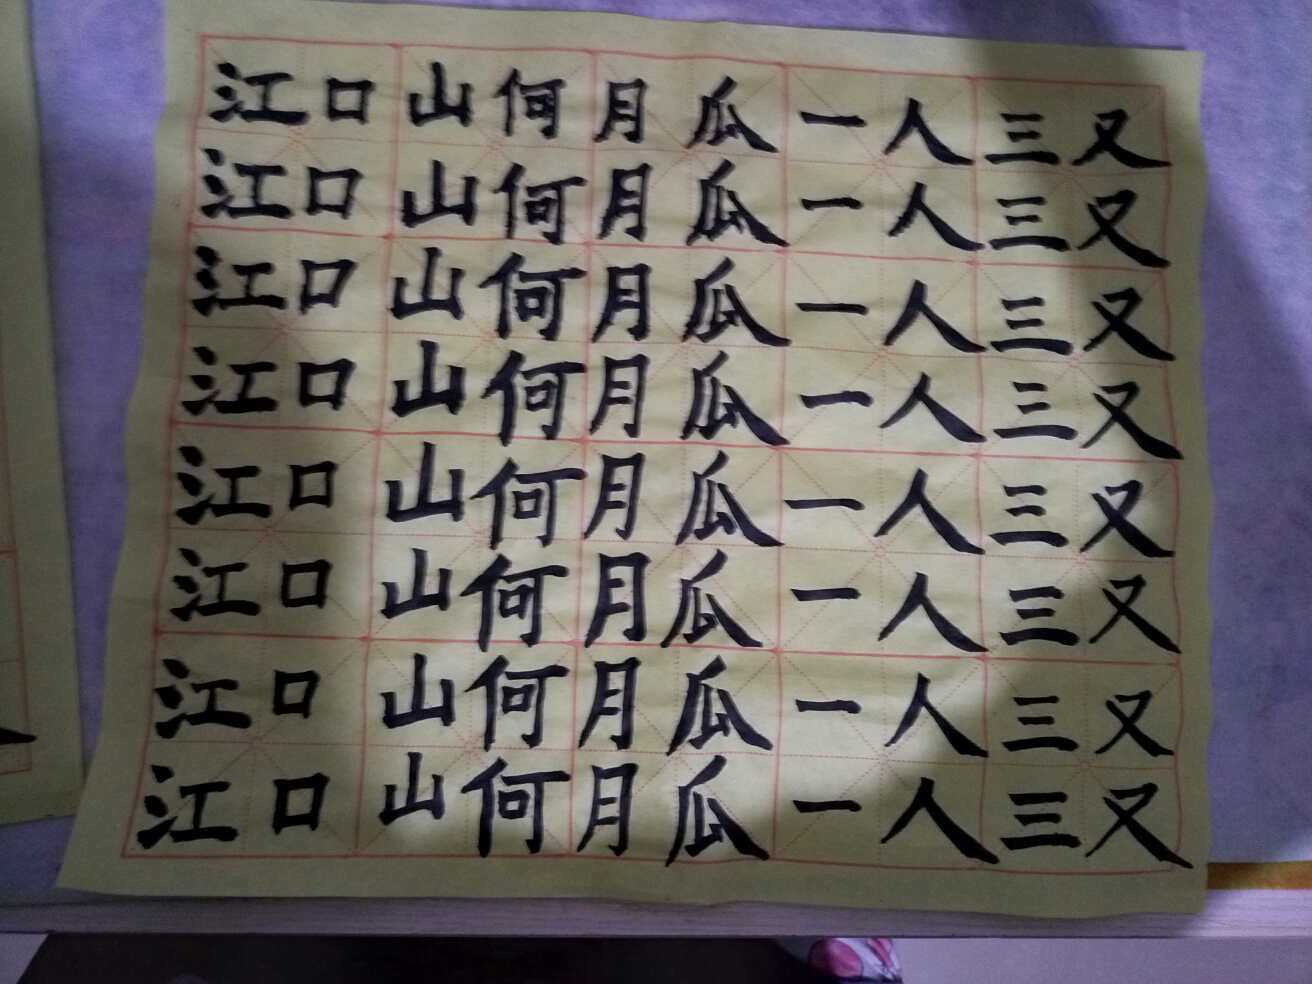 江口山何月瓜一人三又
江口山何月瓜一人三又
江口山何月瓜一人三又
江口山何月瓜一人三又
江口山何月瓜一人三又
江口山何月瓜一人三又
江口山何月瓜一人三又
江口山何月瓜一人三又